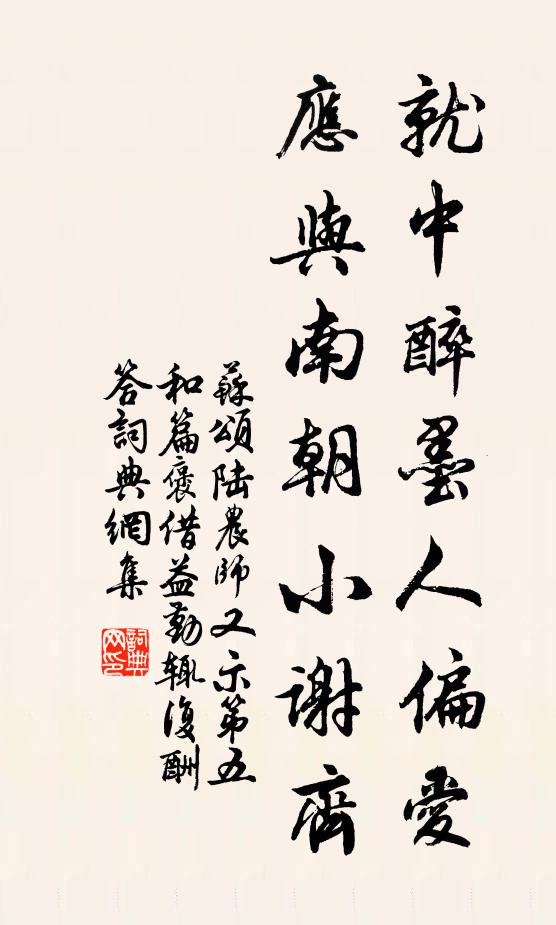 就中醉墨人偏愛
應與南朝小謝齊
蘇頌陸農師又示第五
和篇褒借益勤輒復酬
答詞典網集
詞典网印